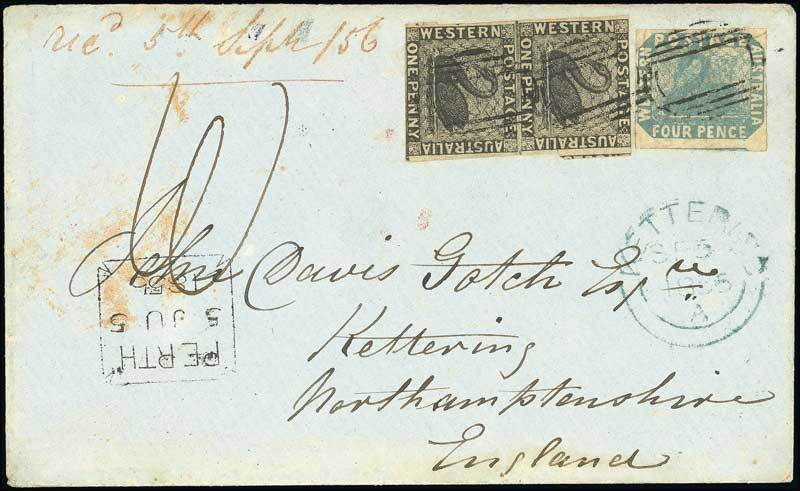 recd. 5th Sept /56
WESTERN
POSTAGE
AUSTRALIA
ONE PENNY
WESTERN
POSTAGE
AUSTRALIA
ONE PENNY
POSTAGE
WESTERN
AUSTRALIA
FOUR PENCE
KETTERING
SE 5
1856
A
John Davis Gotch Esqre
Kettering
Northamptonshire
England
PERTH
5 JU 5